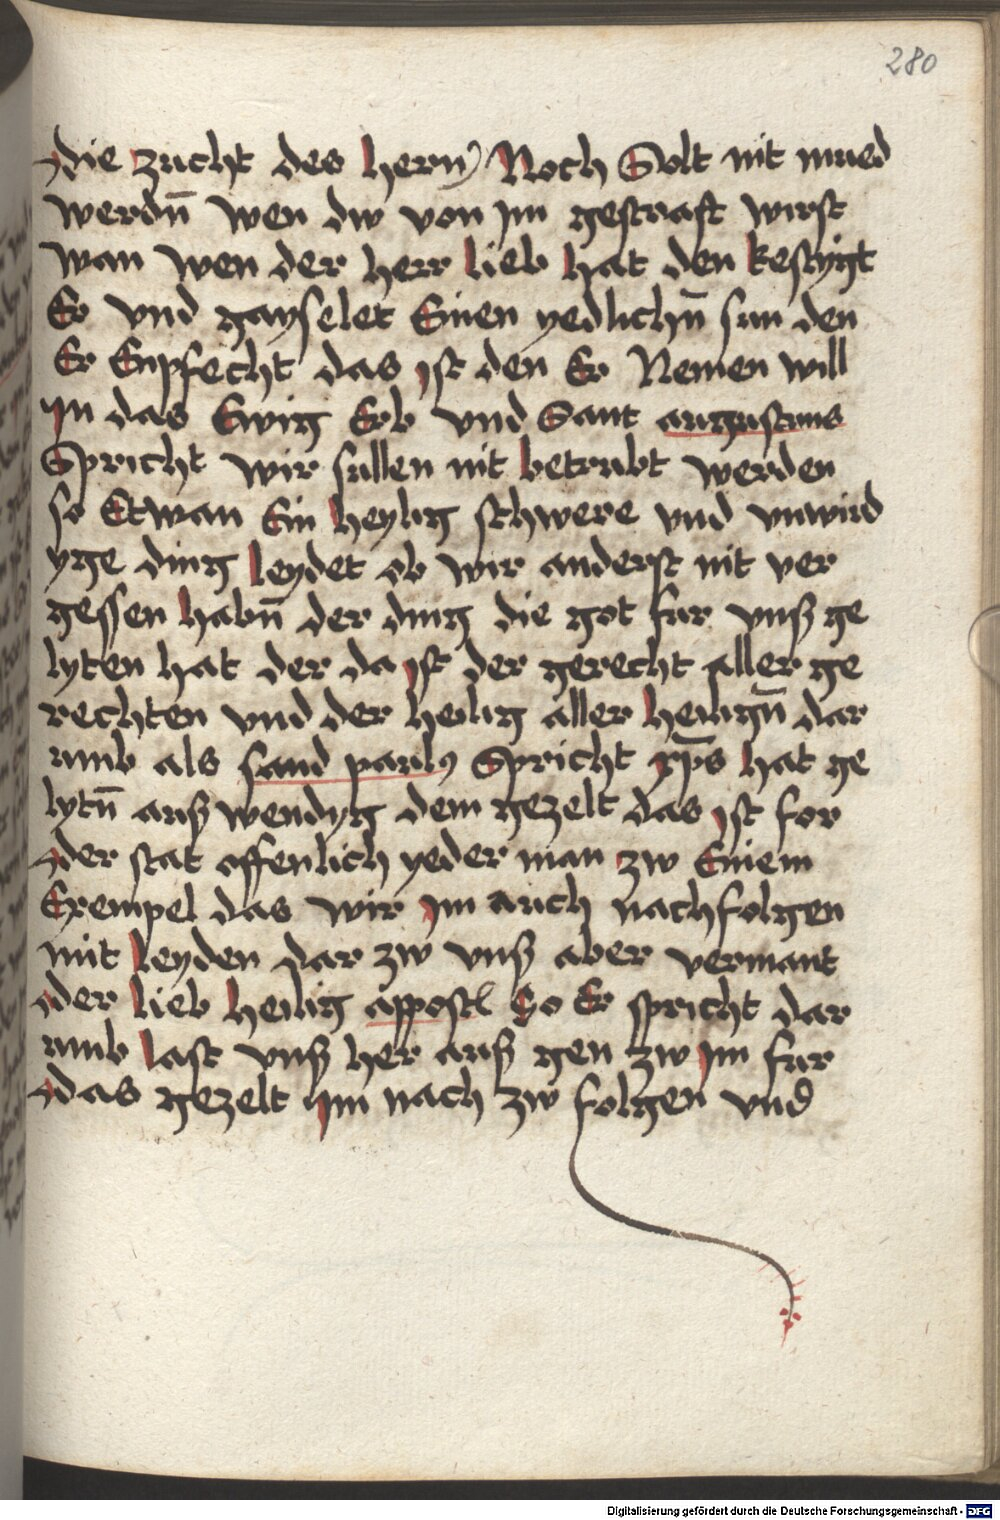 280
die zucht des hern) Noch Solt nit mued
werdn̄ wen dw von jm gestraft wirst
wan wen der herr lieb hat den kestygt
Er vnd gayselet Einen yedlichn̄ sun den
Er Enpfecht das jst den Er Nemen will
jn das Ewig Erb vnd Sant augustinus
Spricht wir sullen nit betrubt werden
so Etwan Ein heylig schwere vnd vnwird
yge ding leydet ob wir anderst nit ver
gessen habn̄ der ding die got fur vnß ge
lyten hat der da jst der gerecht aller ge
rechten vnd der heilig aller heilign̄ dar
umb als sand paulus Spricht xp̄s hat ge
lytn̄ auß wendyg dem gezelt das jst for
der stat offenlich yeder man zw Einem
Exempel das wir jm auch nachfolgen
mit leyden dar zw vnß aber vermant
der lieb heilig appostl So Er spricht dar
umb last vnß her auß gen zw jm fur
das gezelt jm nach zw folgen vnd
Digitalisierung gefördert durch die Deutsche Forschungsgemeinschaft - DFG